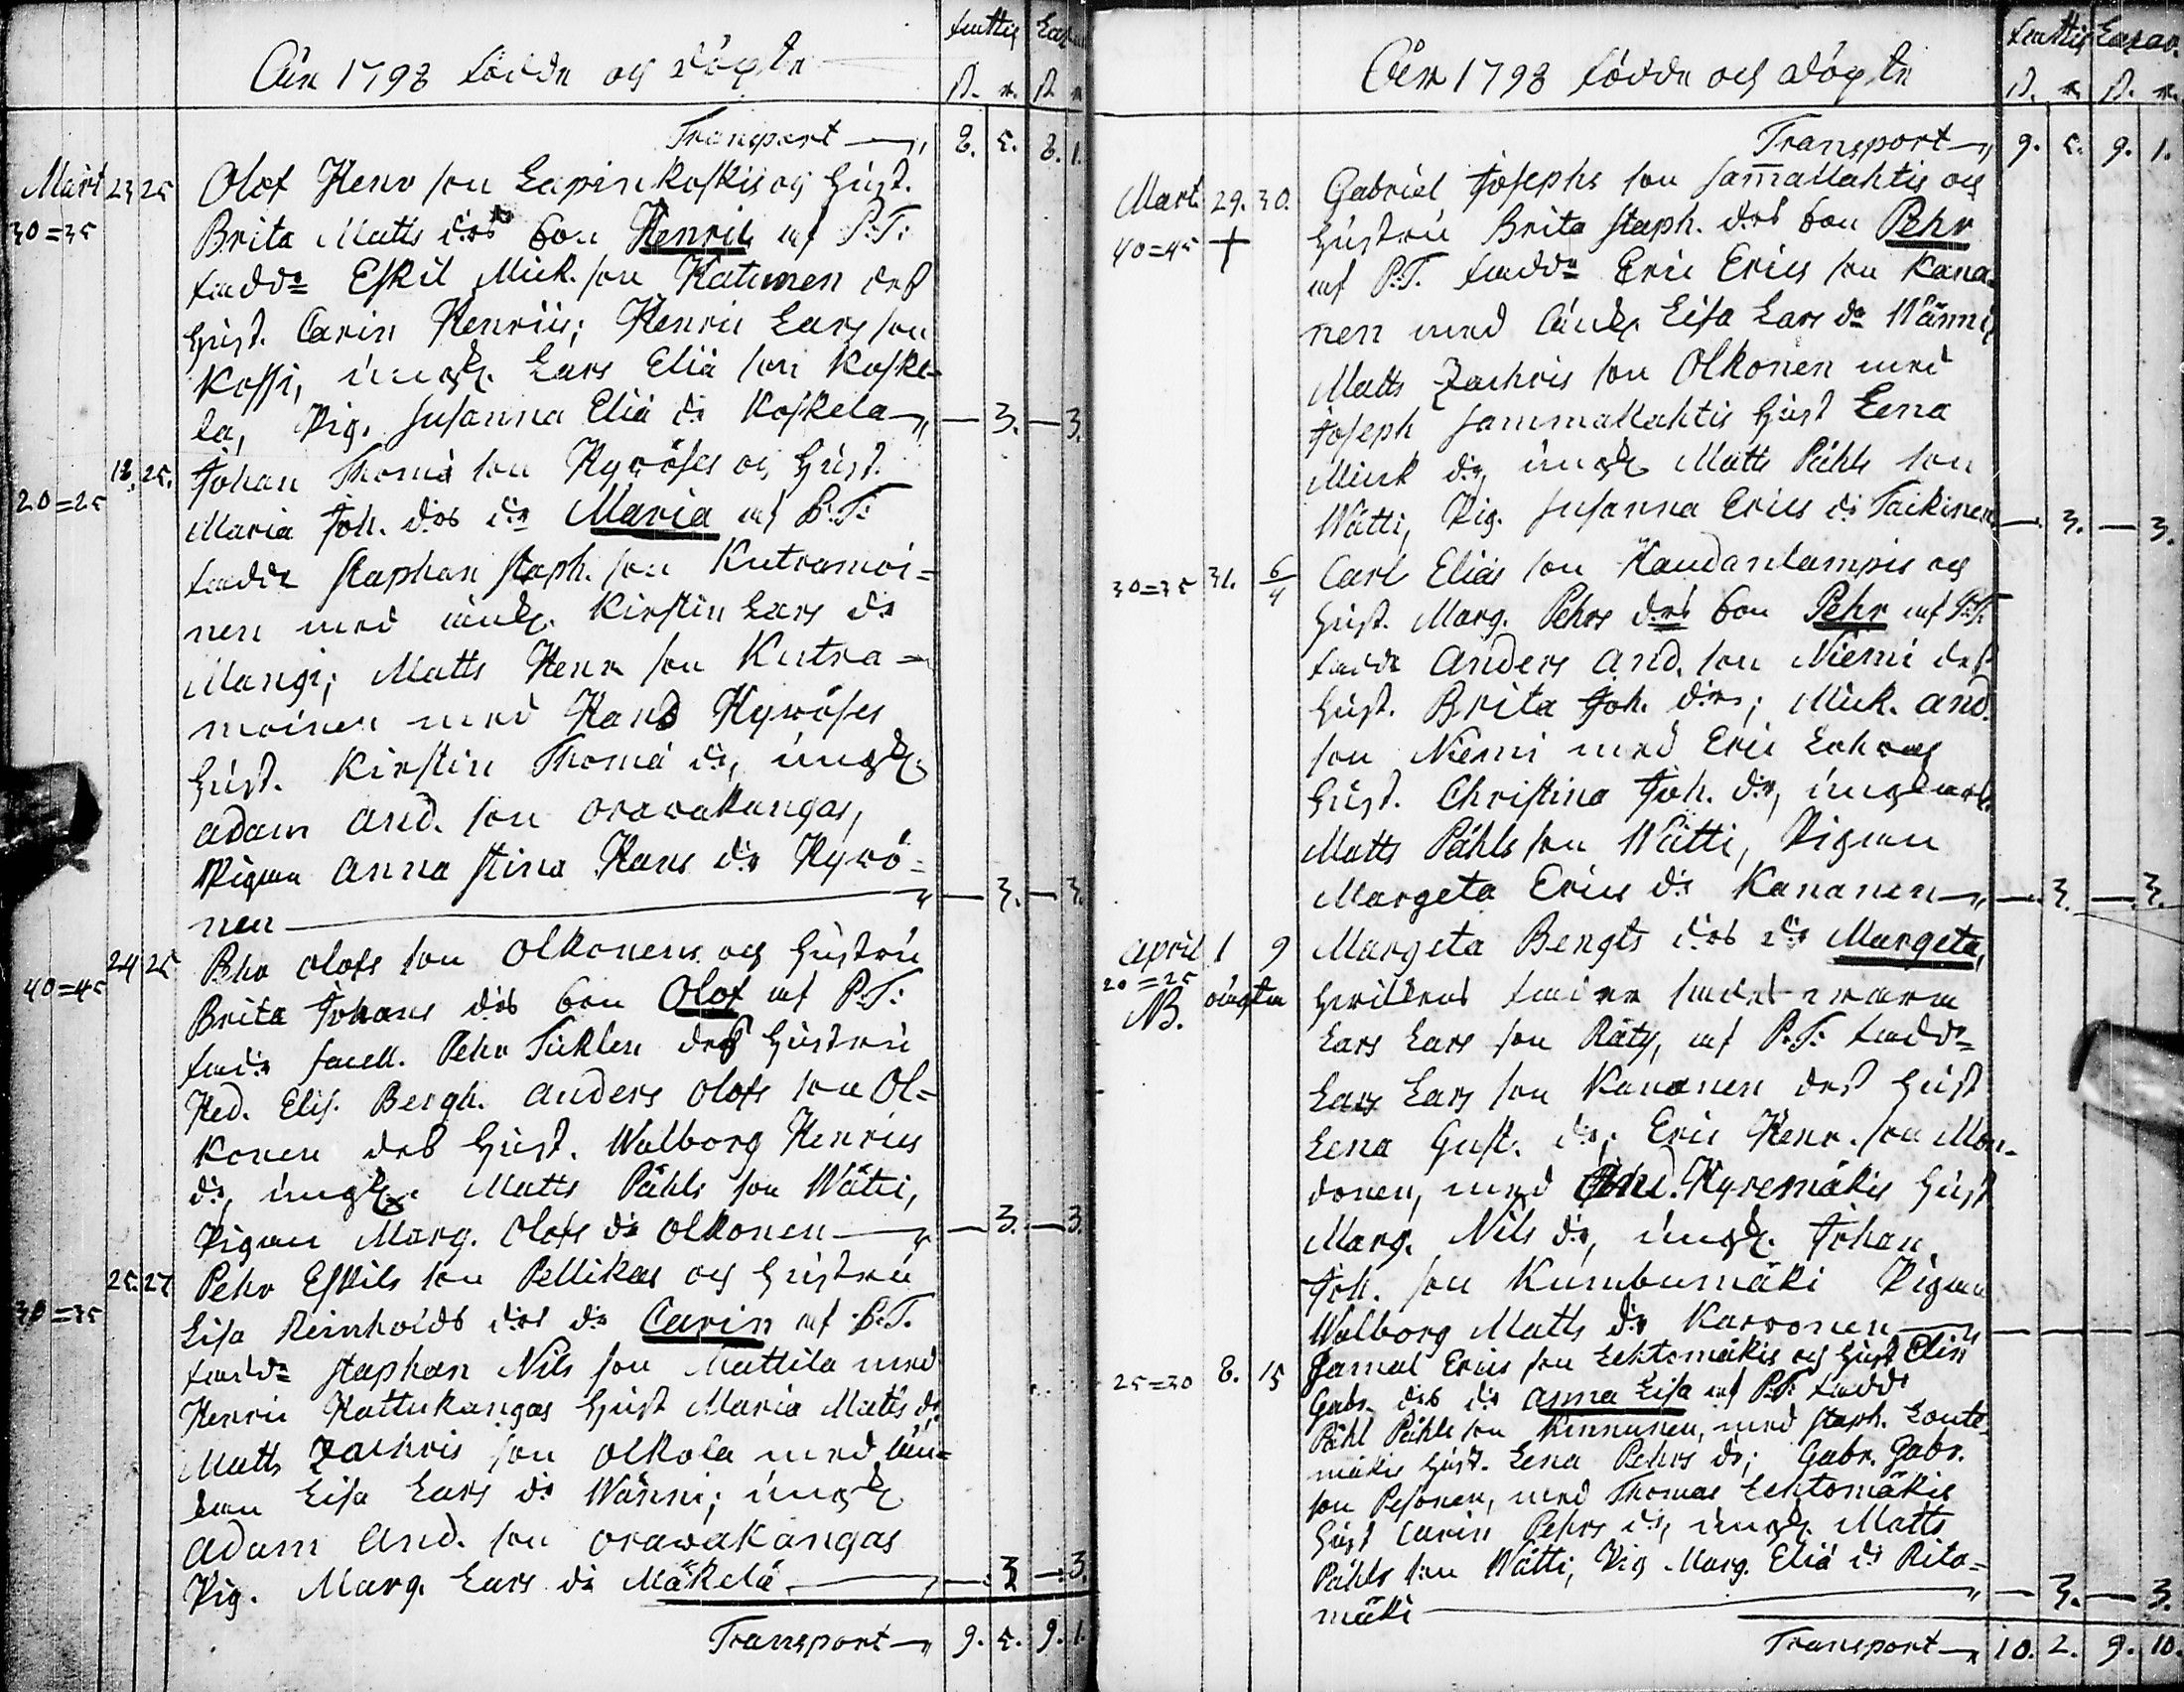 Åhr 1798 födde och döpte
Transport 8. 5. 8. 1.
Mart 23 25 Olof Henr son Lapinkoskis och hust.
30=35 Brita Matts drs son Henric af P.T:
fadd: Eskil Mick. son Katunen dess
hust. Carin Henrics; Henric Lars son
Kossi, ungk. Lars Eliæ son Koske-
la, Pig. Susanna Eliæ dr Koskela — 3. — 3.
18. 25. Johan Thomæ son Kyrösес och hust.
20=25 Maria Joh. drs dr Maria af P.T:
faddr Staphan Staph. son Kutramoi=
nen med änk. Kirstin Lars dr
Mangi; Matts Henr son Kutra=
moinen med Hans Kyröses
hust. Kirstin Thomæ dr, ungk.
Adam And. son Orawakangas,
Pigan Anna Stina Hans dr Kyrö=
nen — 3. — 3.
24 25 Pehr Olofs son Olkonens och hustru
40=45 Brita Johans drs son Olof af P.T:
Pehr dess hustru
Hed. Elis. Bergh. Anders Olofs son Ol=
konen dess hust. Walborg Henrics
dr, ungk. Matts Påhls son Wätti,
Pigan Marg. Olofs dr Olkonen — 3. — 3.
25. 27 Pehr Eskils son Pellikas och hustru
30=35 Lisa Reinholds drs dr Carin af P.T.
fadd: Staphan Nils son Mattila med
Henric Kattukangas hust Maria Matts dr
Matts Zachris son Olkola med än=
kan Lisa Lars dr Wänni; ungk
Adam And. son Orawakangas
Pig. Marg. Lars dr Mäkelä — 3 — 3.
Transport 9. 5. 9. 1.
Åhr 1798 födde och döpte
Transport 9. 5. 9. 1.
Mart. 29. 30. Gabriel Josephs son Sammallahtis och
40=45 + hustru Brita Staph. drs son Pehr
af P.T. fadd: Eric Erics son Kana
nen med änk. Lisa Lars dr Wänni,
Matts Zachris son Olkonen med
Joseph Sammallahtis hust Lena
Mick dr, ungk Matts Påhls son
Wätti, Pig. Susanna Erics dr Taikinen — 3. — 3.
30=35 31. 6/4 Carl Eliæ son Haudanlampis och
hust. Marg. Pehrs drs son Pehr af P.T.
fadd: Anders And. son Niemi dess
hust. Brita Joh. dr; Mick. And.
son Niemi med Eric
hust. Christina Joh. dr, ungkarl
Matts Påhls son Wätti, Pigan
Margeta Erics dr Kananen — 3. — 3.
April 1 9 Margeta Bengts drs dr Margeta,
20=25 oägta
NB.
Lars Lars son Räty, af P.T: fadd:
Lars Lars son Kananen dess hust
Lena Gust. dr; Eric Henr. son Mon-
donen, med Kyremäkis hust
Marg. Nils dr, ungk. Johan
Joh. son Kumbumäki Pigan
Walborg Matts dr Karvonen — — — —
25=30 8. 15 Samul Erics son Lehtomäkis och hust Elin
Gabr. drs dr Anna Lisa af P.T: fadd:
Påhl Påhls son Kinnunen, med Staph.
mäkis hust. Lena Pehrs dr; Gabr. Gabr.
son Pesonen, med Thomas Lehtomäkis
hust Carin Pehrs dr, ungk. Matts
Påhls son Wätti, Pig Marg. Eliæ dr Rita=
mäki — 3. — 3.
Transport 10. 2. 9. 10.